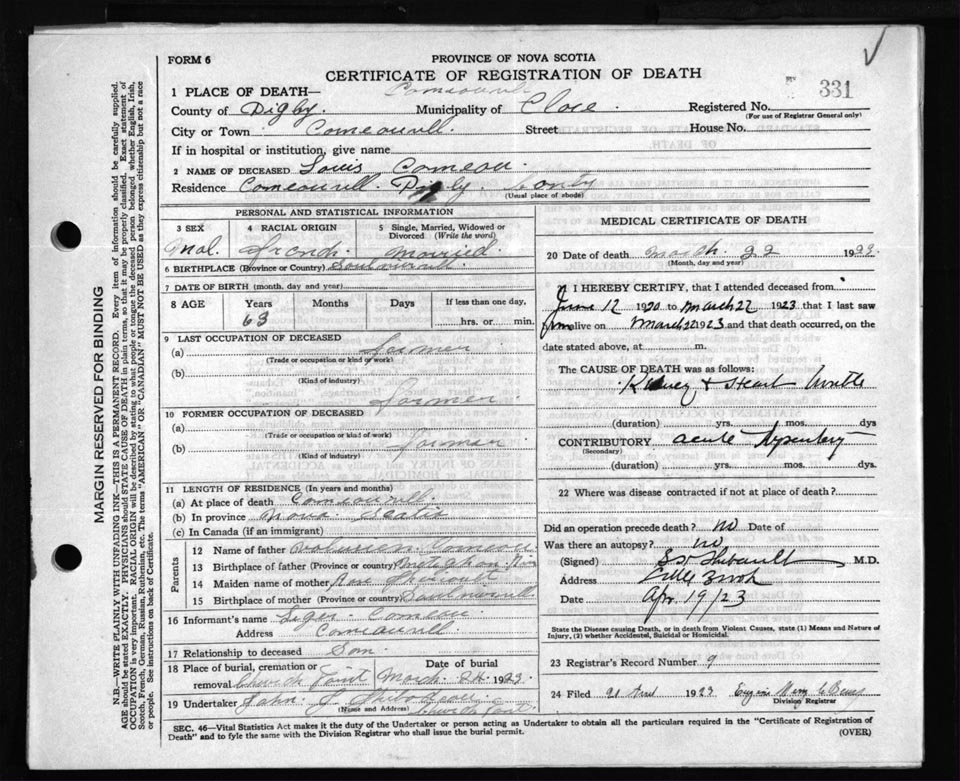 FORM 6
PROVINCE OF NOVA SCOTIA
CERTIFICATE OF REGISTRATION OF DEATH
331
1 PLACE OF DEATH—
County of Digby. Municipality of Clare. Registered No.
(For use of Registrar General only)
City or Town Comeauvill. Street House No.
If in hospital or institution, give name
2 NAME OF DECEASED Louis Comeau.
Residence Comeauvill. Digby. Conty
(Usual place of abode)
PERSONAL AND STATISTICAL INFORMATION
3 SEX
4 RACIAL ORIGIN
5 Single, Married, Widowed or Divorced (Write the word)
Mal. French married
6 BIRTHPLACE (Province or Country)
7 DATE OF BIRTH (month, day and year)
8 AGE Years Months Days If less than one day,
63 hrs. or min.
9 LAST OCCUPATION OF DECEASED
(a) Farmer
(Trade or occupation or kind of work)
(b)
(Kind of industry)
Farmer
10 FORMER OCCUPATION OF DECEASED
(a)
(Trade or occupation or kind of work)
(b) Farmer
(Kind of industry)
11 LENGTH OF RESIDENCE (In years and months)
(a) At place of death Comeauvill
(b) In province Nova Scatia
(c) In Canada (if an immigrant)
Parents
12 Name of father Comeau
13 Birthplace of father (Province or country)
14 Maiden name of mother Rose
15 Birthplace of mother (Province or country)
16 Informant's name Leger Comeau
Address Comeauvill.
17 Relationship to deceased Son
18 Place of burial, cremation or removal Church Point Date of burial March 24 1923.
19 Undertaker John Thibodeau
(Name and Address) Church Point
MEDICAL CERTIFICATE OF DEATH
20 Date of death march 22 1923.
(Month, day and year)
I HEREBY CERTIFY, that I attended deceased from
June 12 1920 to March 22 1923 that I last saw
him alive on March 22 1923 and that death occurred, on the
date stated above, at m.
The CAUSE OF DEATH was as follows:
Kidney & Heart
(duration) yrs. mos. dys
CONTRIBUTORY acute
(Secondary)
(duration) yrs. mos. dys.
22 Where was disease contracted if not at place of death?
Did an operation precede death? no Date of
Was there an autopsy? no
(Signed) Thibault M.D.
Address Little Brook
Date Apr 19/23
State the Disease causing Death, or in death from Violent Causes, state (1) Means and Nature of Injury, (2) whether Accidental, Suicidal or Homicidal.
23 Registrar's Record Number 9
24 Filed 21 1923
Division Registrar
SEC. 46—Vital Statistics Act makes it the duty of the Undertaker or person acting as Undertaker to obtain all the particulars required in the "Certificate of Registration of
Death" and to fyle the same with the Division Registrar who shall issue the burial permit.
(OVER)
MARGIN RESERVED FOR BINDING
N.B.—WRITE PLAINLY WITH UNFADING INK—THIS IS A PERMANENT RECORD. Every item of information should be carefully supplied.
AGE should be stated EXACTLY. PHYSICIANS should STATE CAUSE OF DEATH in plain terms, so that it may be properly classified. Exact statement of
OCCUPATION is very important. RACIAL ORIGIN will be described by stating to what people or tongue the deceased person belonged whether English, Irish,
Scotch, French, German, Russian, Ruthenian, etc. The terms "AMERICAN" OR "CANADIAN" MUST NOT BE USED as they express citizenship but not a race
or people. See instructions on back of Certificate.